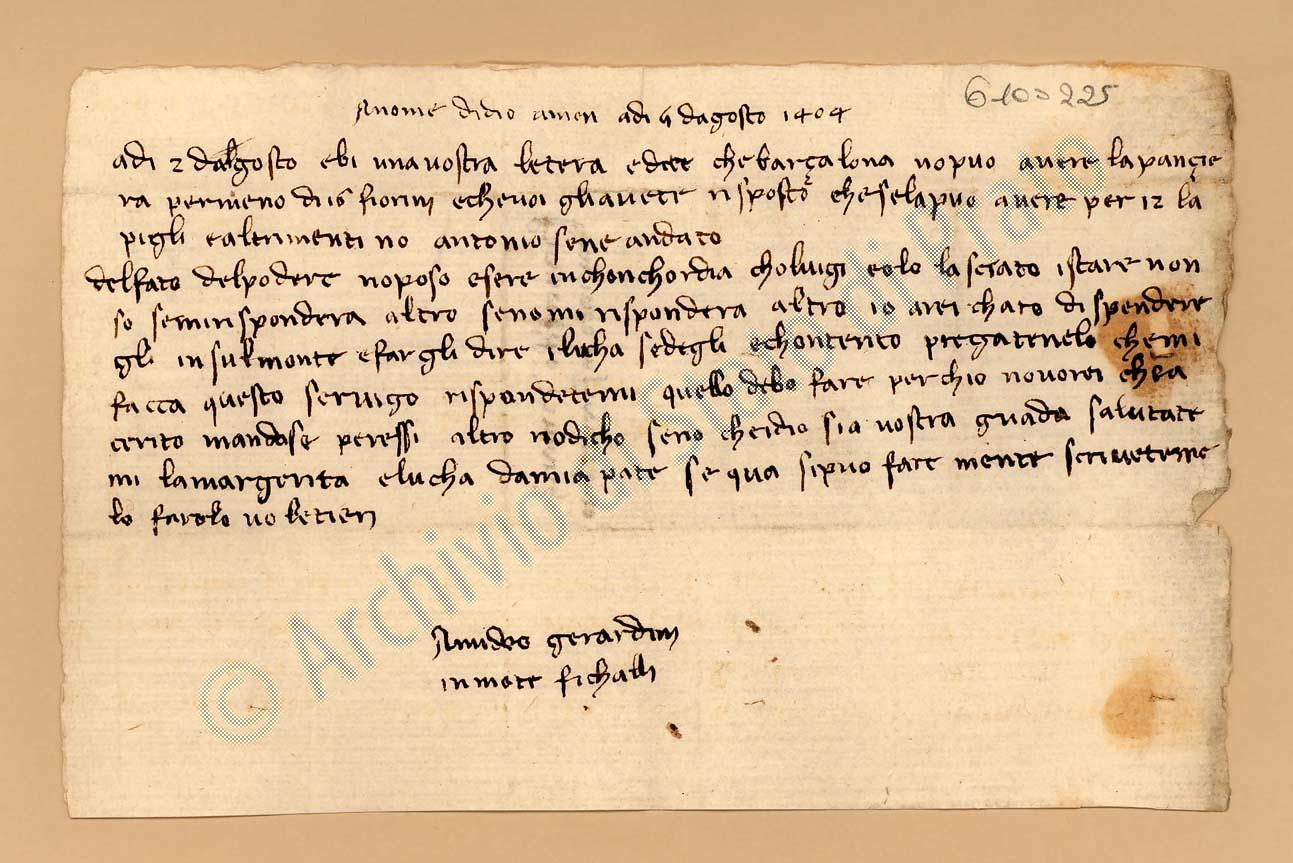 Anome didio amen adi 4 dagosto 1404
610 225
adi 2 dalgosto ebi una vostra letera e dite che barçalona no puo avere la pançie
ra per meno di 16 fiorini e che voi gli avete risposto che se la puo avere per 12 la
pigli e altrimenti no antonio sene andato
del fato del podere no poso esere in chonchordia cho luigi e olo lasciato istare non
so semi rispondera altro seno mi rispondera altro io arei charo di spendere
gli in sul monte e fargli dire i lucha sedegli e chontento pregatenelo che mi
facca questo servigo rispondetemi quello debo fare perchio no vorei che a
cerito mandase per essi altro no dicho seno che idio sia vostra guada salutate
mi la margerita e lucha da mia pate se qua si puo fare mente scriveteme
lo farolo voletieri
Amideo gerardini
in mote fichalli
© Archivio di Stato di Prato